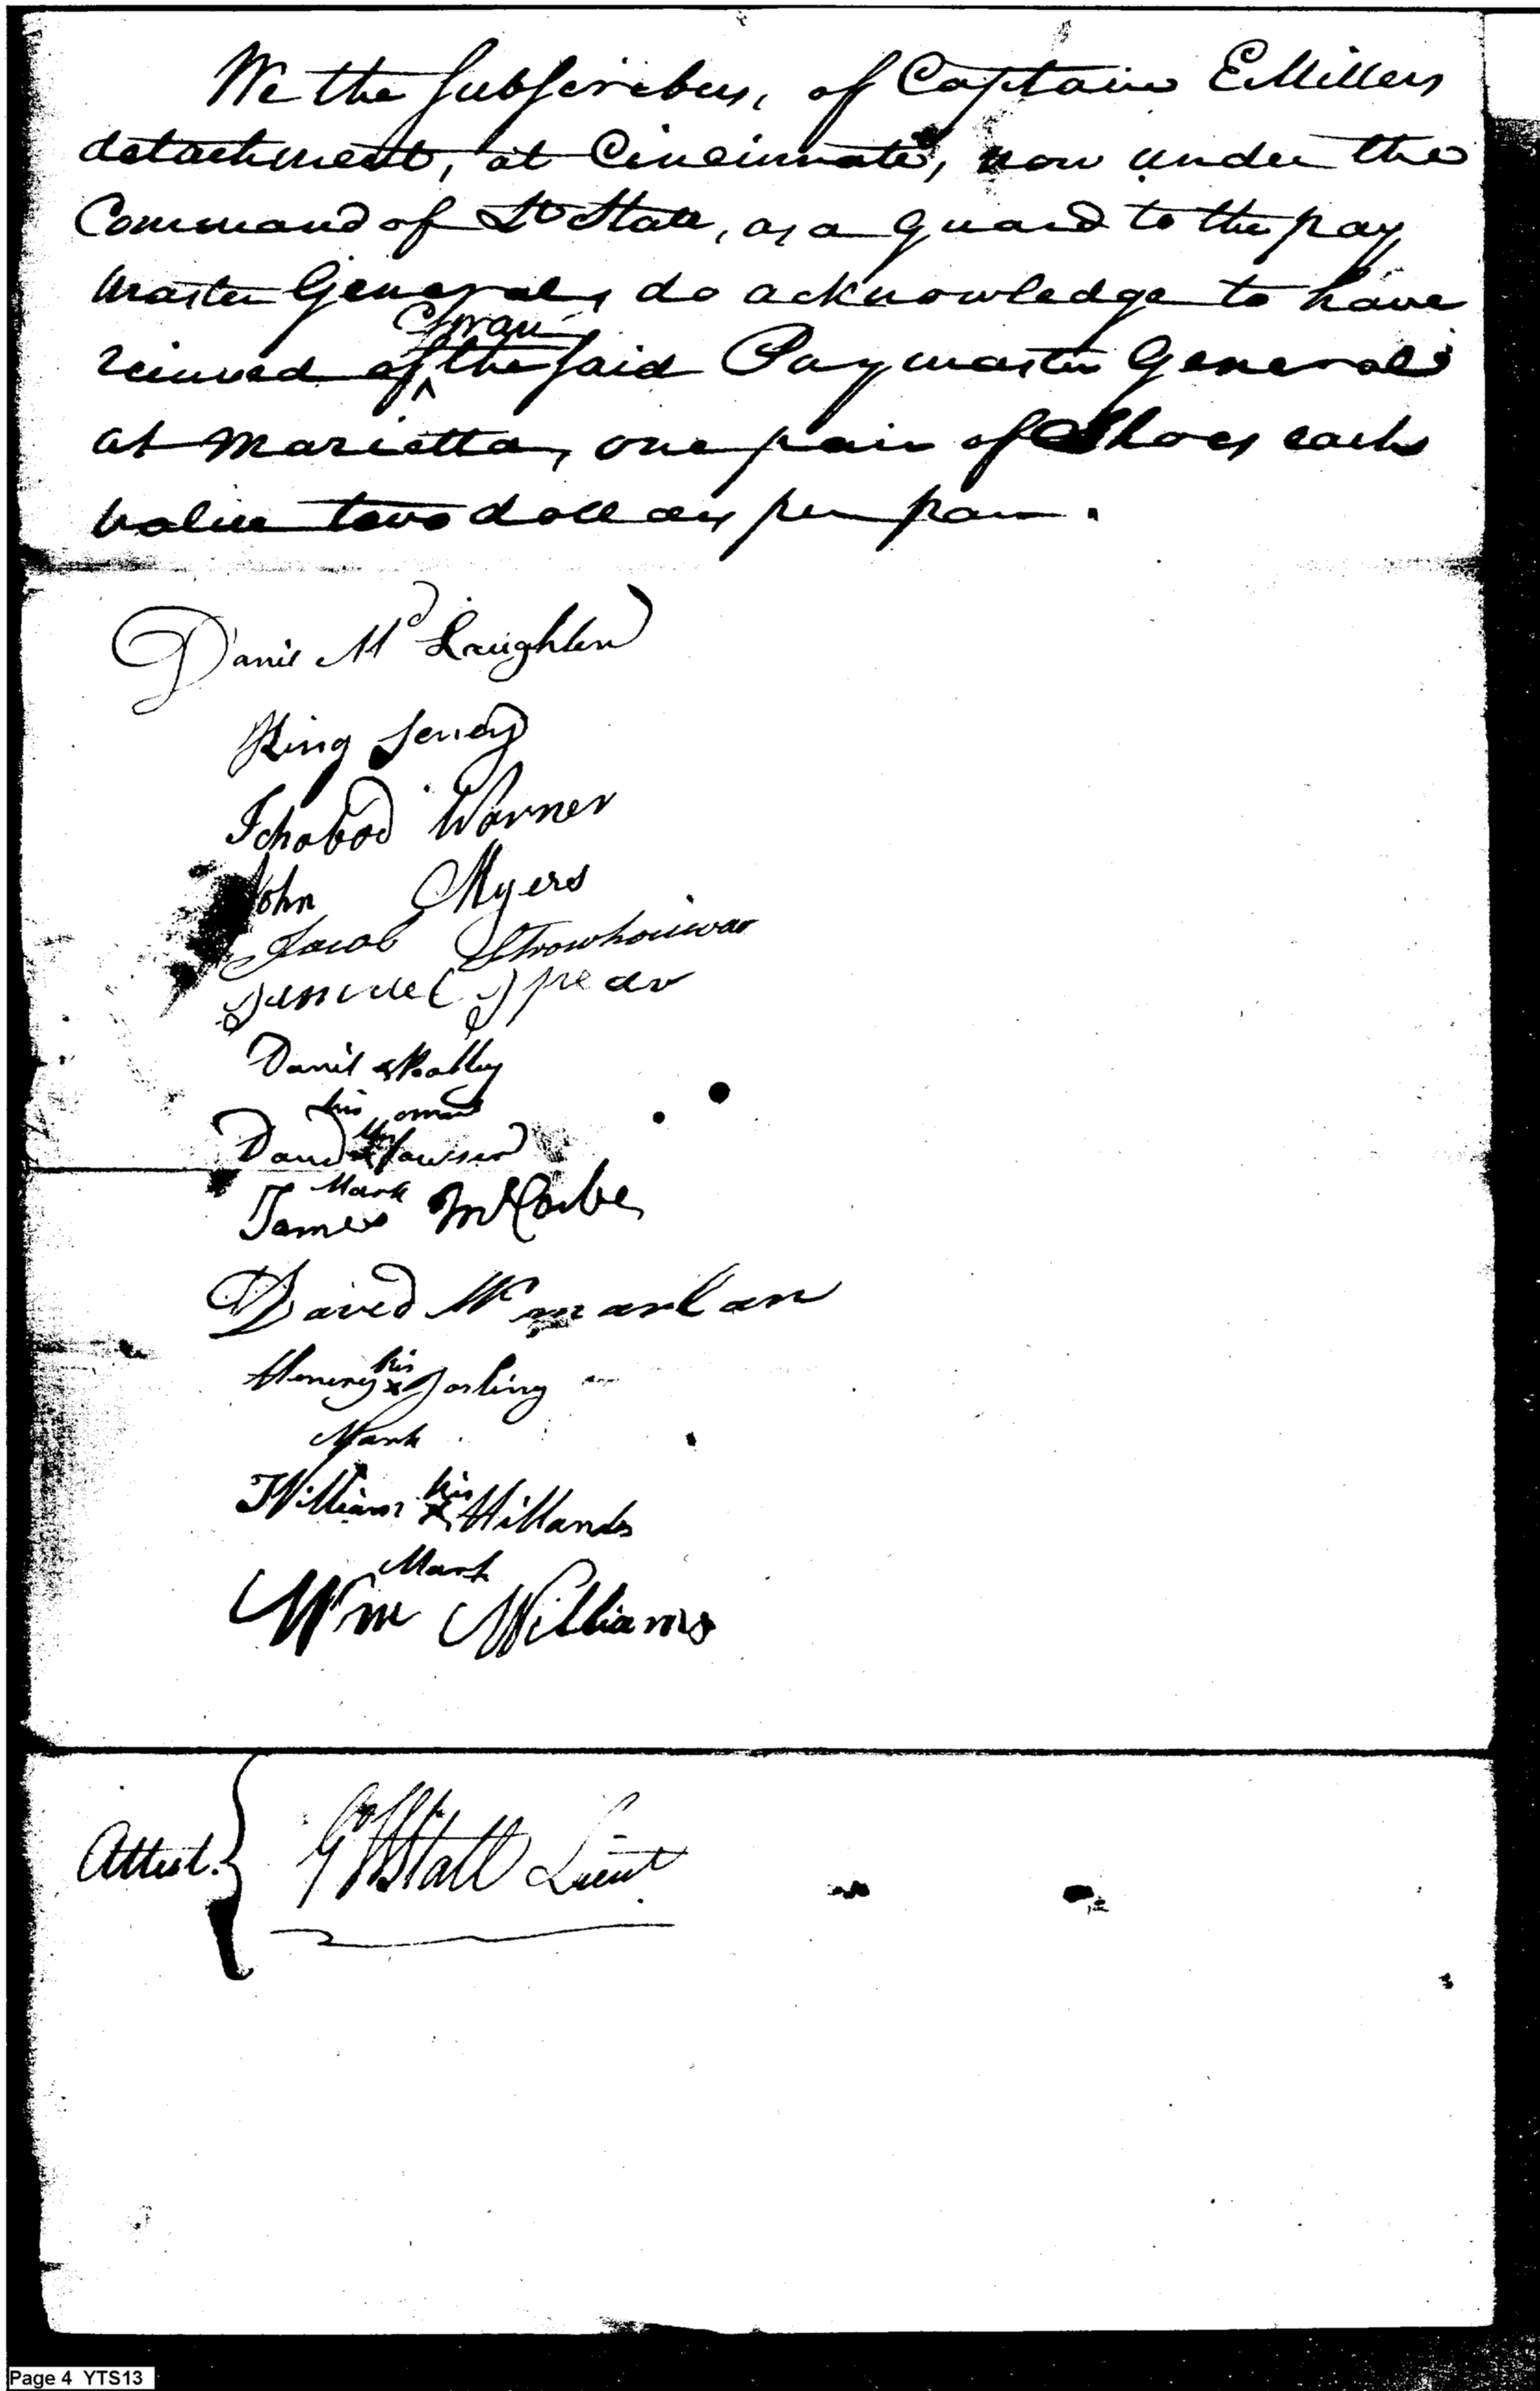 We the Subscribers, of Captain E Millers
detachment, at Cincinnati, now under the
Command of Lt Stall, as a guard to the pay
Master General, do acknowledge to have
C Swan
received of ^ the said Paymaster General
at Marietta, one pair of Shoes each
value two dollars per pair.
Danil Mc Laughlen
King
Ichabod Warner
John Myers
Jacob Strowhouwar
Samuel Spear
Danil
his
David
Mark
James McCabe
David Mc
his
Henery x Darling
Mark
his
William x Hillands
Mark
Wm Williams
Attest. } G W Stall Lieut
Page 4 YTS13